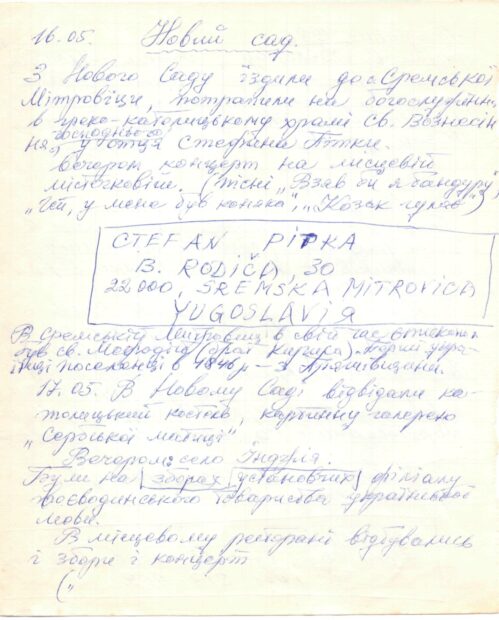 16.05. Новий сад.
З Нового Саду їздили до с. Сремської
Мітровіци, потрапили на богослужіння
в греко-католицькому храмі Св. Вознесін
ня господнього у отця Стефана Пітки.
Вечором концерт на місцевій
(пісні „Взяв би я бандуру",
„Гей, у мене був коняка", „Козак
СТЕFАN PITKA
B. RODIČA, 30
22000, SREMSKA MITROVICA
YUGOSLAVIЯ
В Сремській Мітровиці в свій час єпископом
був св. Мефродій (брат Кирила). Перші укра-
їнці поселенці в 1846 р – з Пряшівщини.
17.05. В Новому Саді відвідали ка-
толицький костьол, картинну галерею
„Сербської матиці"
Вечором: село Інджія.
Були на зборах установчих філіалу
воєводинського товариства української
мови.
В місцевому ресторані відбувались
і збори і концерт
(„